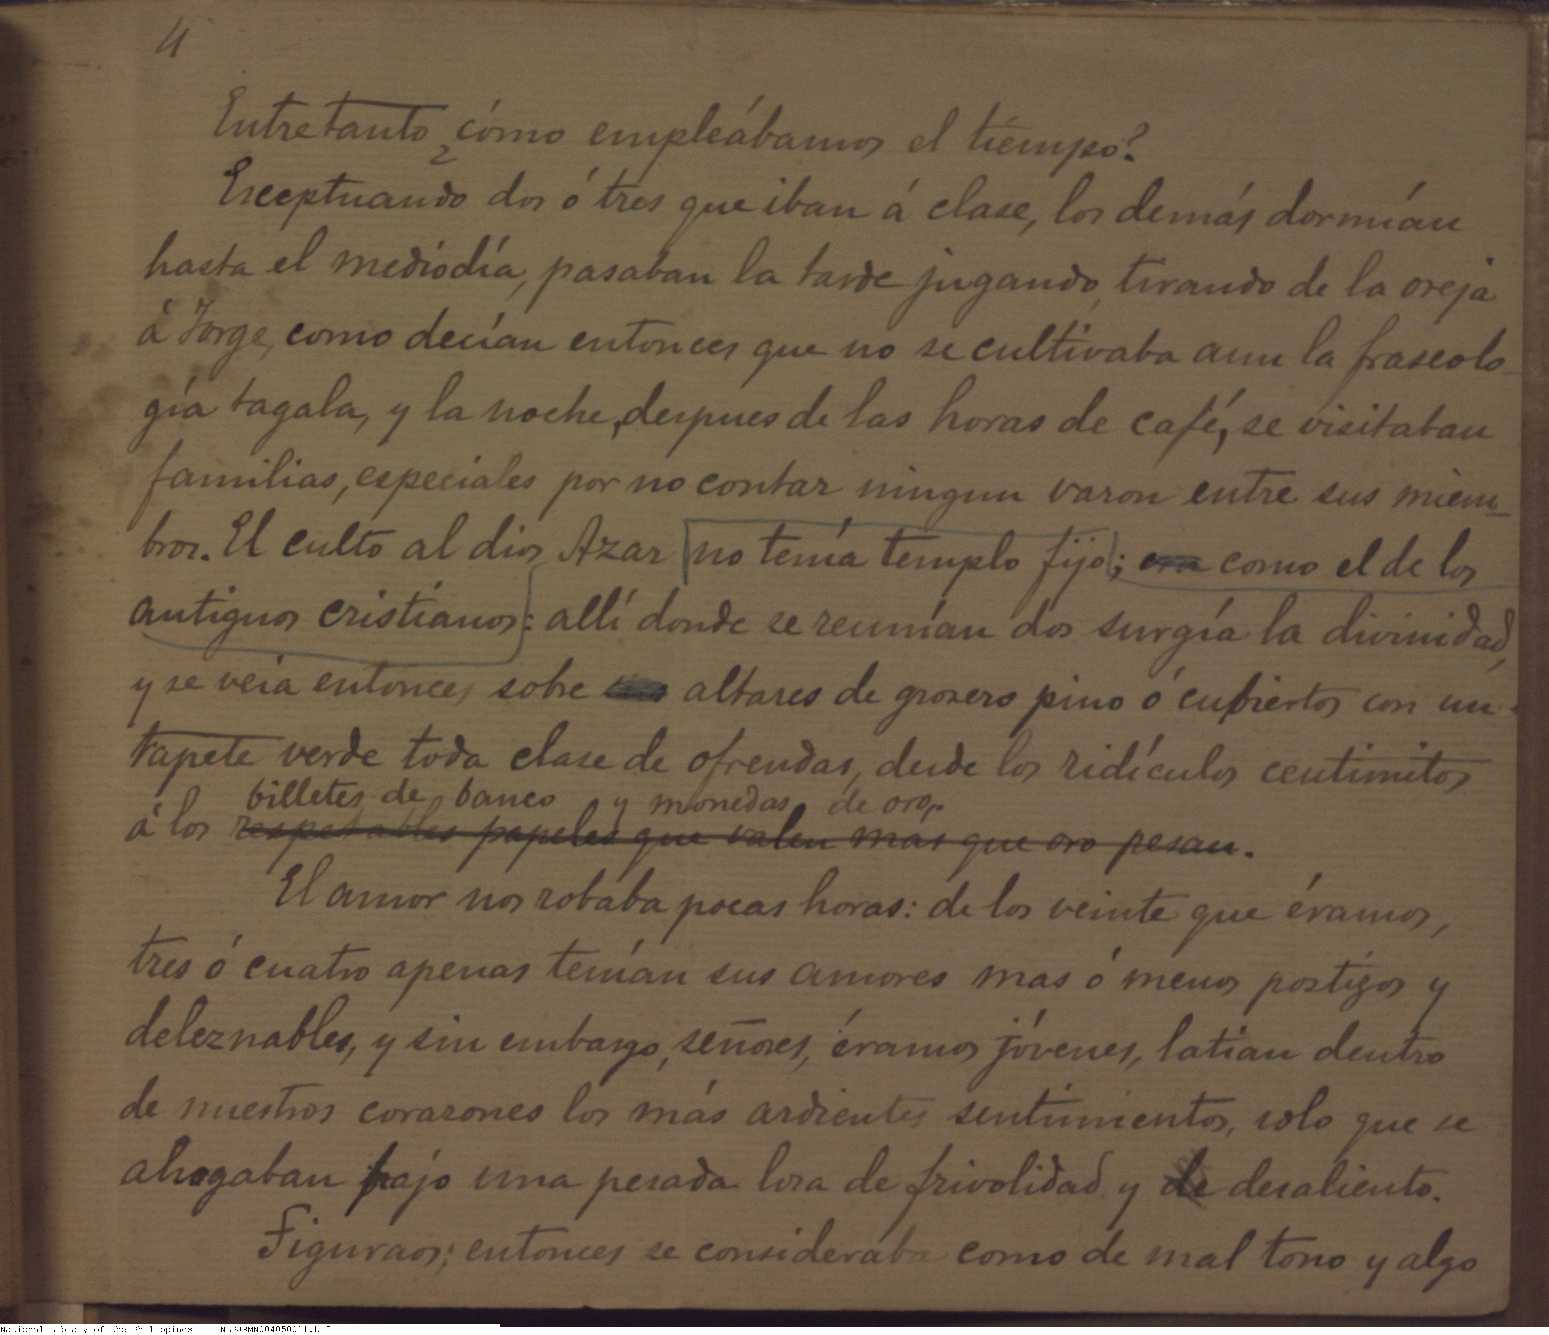 4
Entretanto ¿cómo empleábamos el tiempo?
Esceptuando dos ó tres que iban á clase, los demás dormían
hasta el mediodía, pasaban la tarde jugando, tirando de la oreja
á Jorge, como decían entonces que no se cultivaba aun la fraseolo-
gía tagala, y la noche, despues de las horas de café, se visitaban
familias, especiales por no contar ningun varon entre sus miem-
bros. El culto al dios Azar no tenía templo fijo; era como el de los
antiguos cristianos: allí donde se reunían dos surgía la divinidad,
y se veia entonces sobre altares de grosero pino ó cubiertos con un
tapete verde toda clase de ofrendas, desde los ridículos centimitos
billetes de banco y monedas de oro.
á los respetables papeles que valen mas que oro pesan.
El amor nos robaba pocas horas: de los veinte que éramos,
tres ó cuatro apenas tenían sus amores mas ó menos postizos y
deleznables, y sin embargo, señores, éramos jóvenes, latian dentro
de nuestros corazones los más ardientes sentimientos, solo que se
ahogaban bajo una pesada losa de frivolidad y de desaliento.
Figuraos; entonces se consideraba como de mal tono y algo
National Library of the Philippines